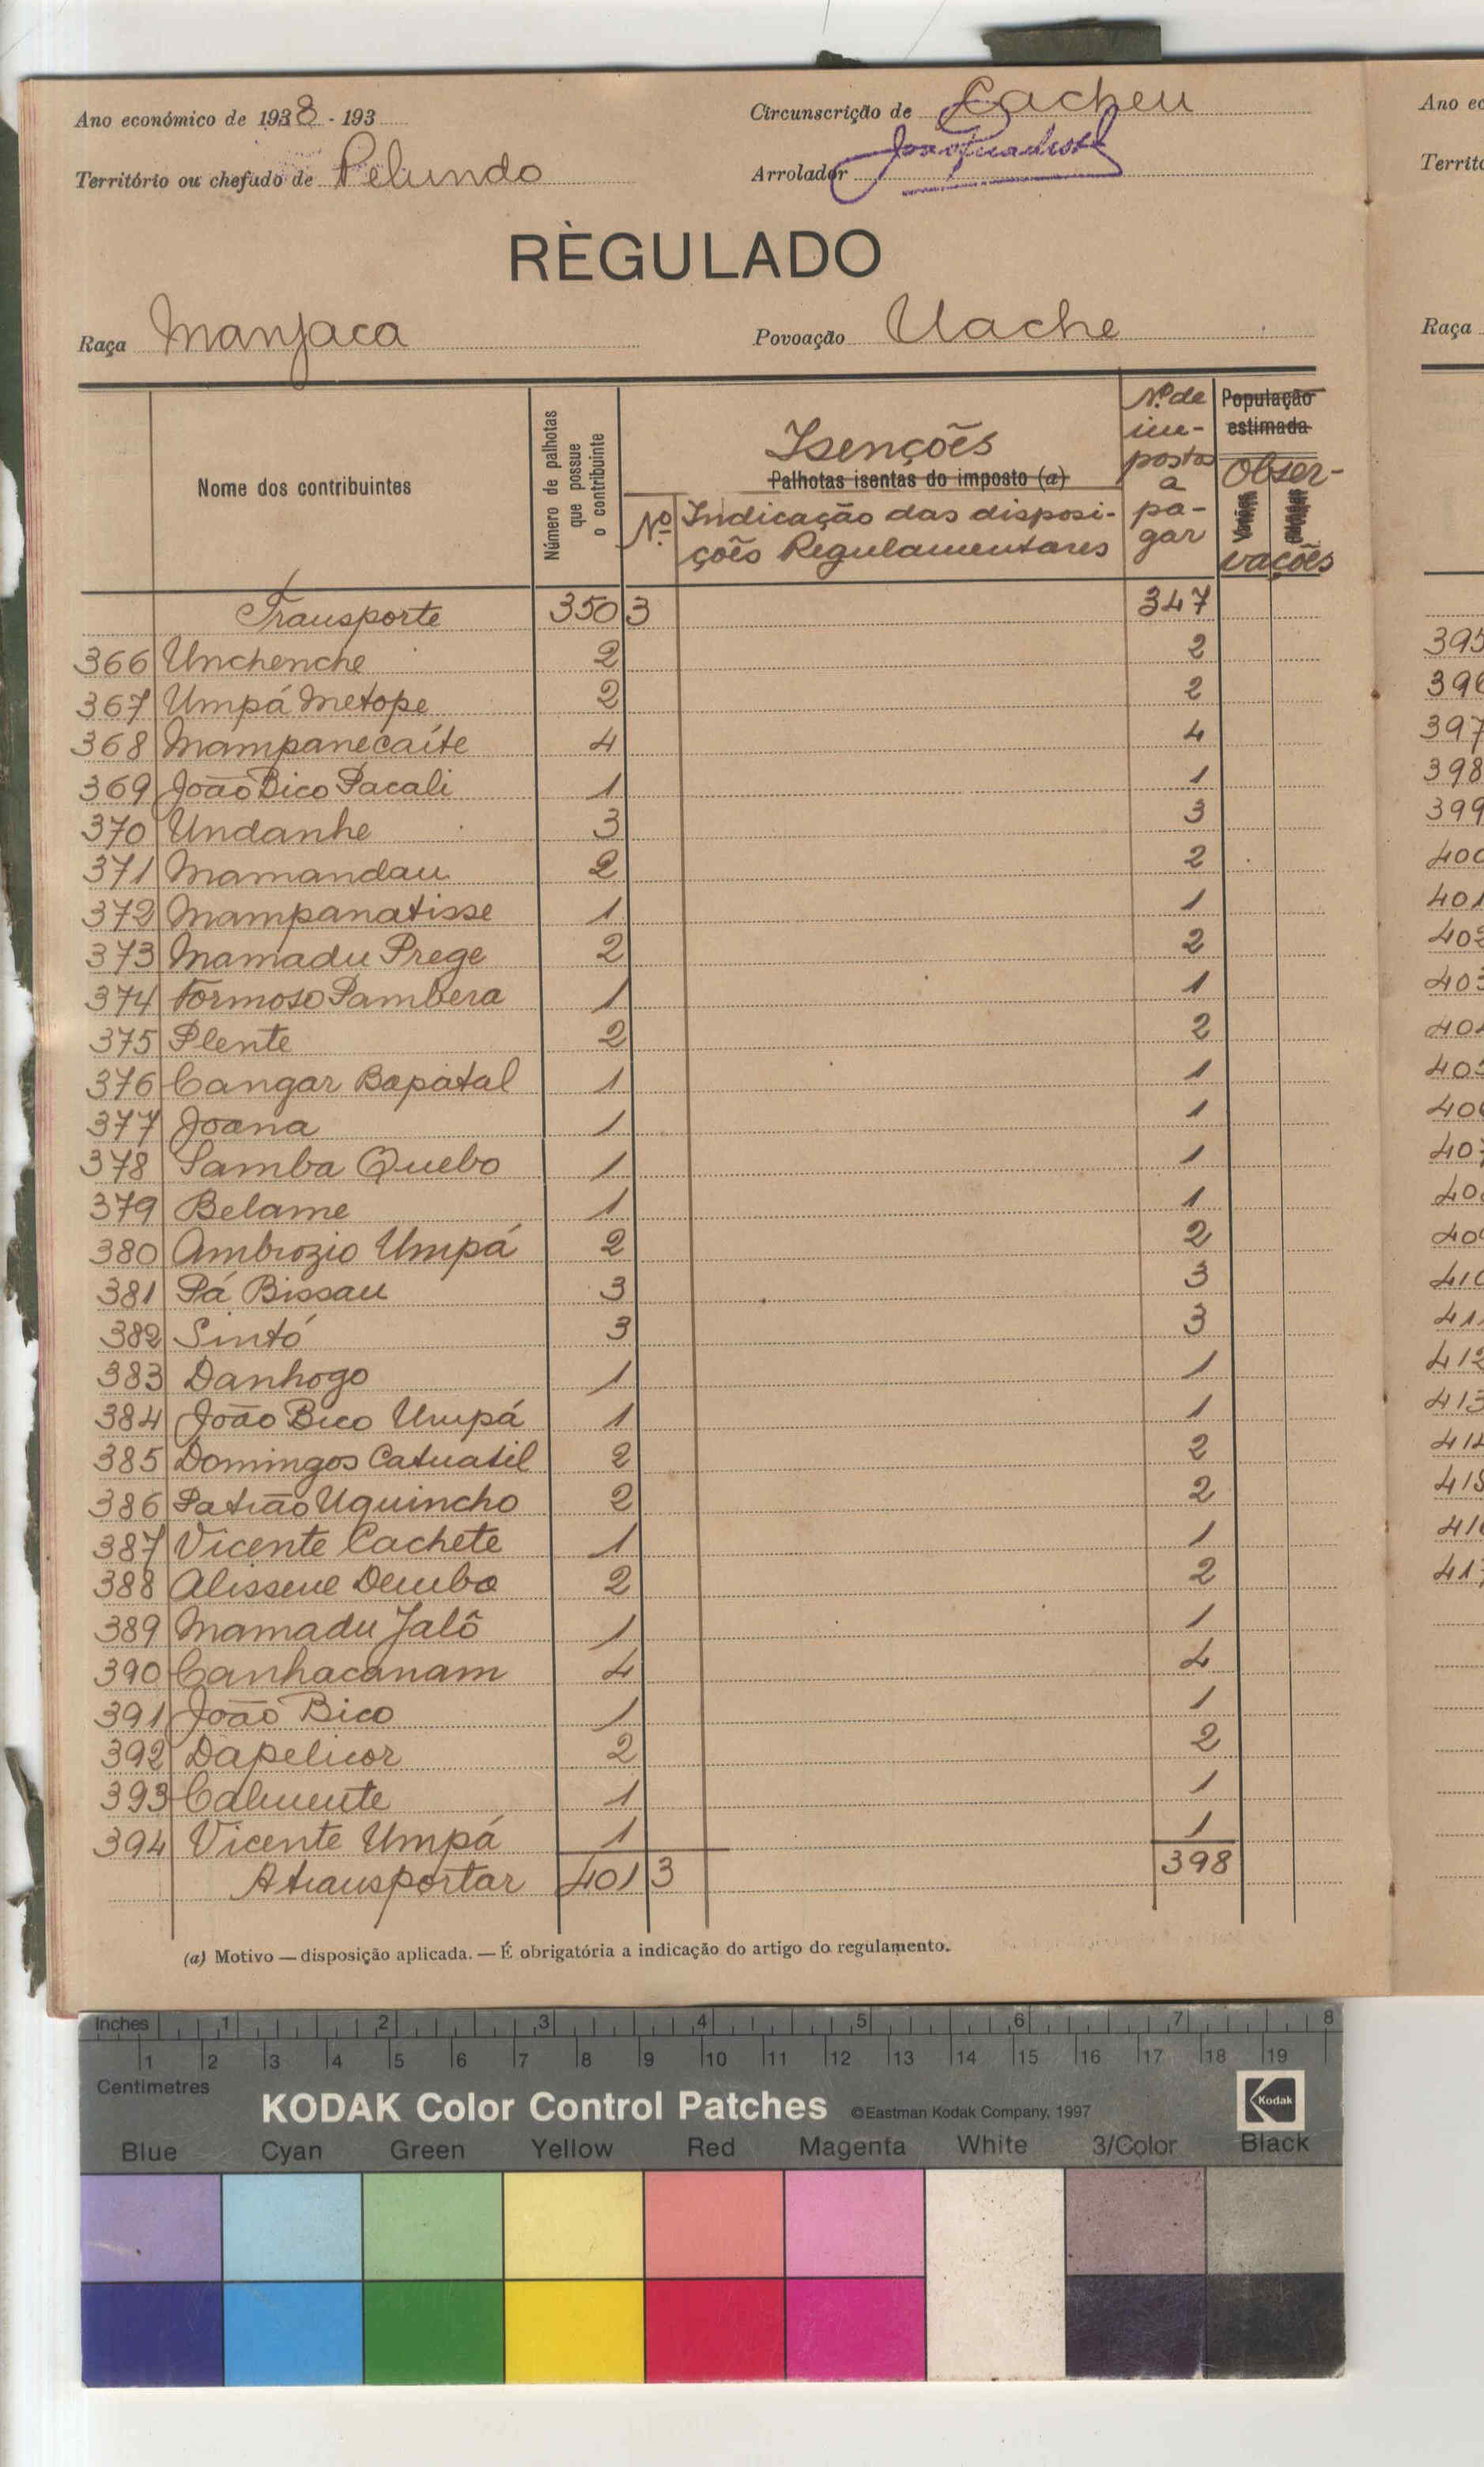 Ano económico de 1938 - 193
Circunscrição de Cacheu
Território ou chefado de Pelundo
Arrolador
RÈGULADO
Raça Manjaca
Povoação Uache
Nome dos contribuintes
Número de palhotas que possue o contribuinte
Isenções
Palhotas isentas do imposto (a)
Nº
Indicação das disposi-
ções Regulamentares
Nº de im-
postos a
pa-
gar
População estimada
Obser-
vações
Transporte 350 3 347
366 Unchenche 2 2
367 Umpá Metope 2 2
368 Mampanecaíte 4 4
369 João Bico Pacali 1 1
370 Undanhe 3 3
371 Mamandau 2 2
372 Mampanatisse 1 1
373 Mamadu Prege 2 2
374 Formoso Pambera 1 1
375 Plente 2 2
376 Cangar Bapatal 1 1
377 Joana 1 1
378 Samba Quebo 1 1
379 Belame 1 1
380 Ambrozio Umpá 2 2
381 Pá Bissau 3 3
382 Sintó 3 3
383 Danhogo 1 1
384 João Bico Umpá 1 1
385 Domingos Catuatil 2 2
386 Patrão Uquincho 2 2
387 Vicente Cachete 1 1
388 Alissene Dembo 2 2
389 Mamadu Jalô 1 1
390 Canhacanam 4 4
391 João Bico 1 1
392 Dapelicor 2 2
393 Calmente 1 1
394 Vicente Umpá 1 1
A transportar 401 3 398
(a) Motivo — disposição aplicada. — É obrigatória a indicação do artigo do regulamento.
Ano ec
Territó
Raça
395
396
397
398
399
400
401
402
403
404
405
406
407
408
409
410
411
412
413
414
415
416
417
Inches 1 2 3 4 5 6 7 8
1 2 3 4 5 6 7 8 9 10 11 12 13 14 15 16 17 18 19
Centimetres
KODAK Color Control Patches ©Eastman Kodak Company, 1997 Kodak
Blue Cyan Green Yellow Red Magenta White 3/Color Black